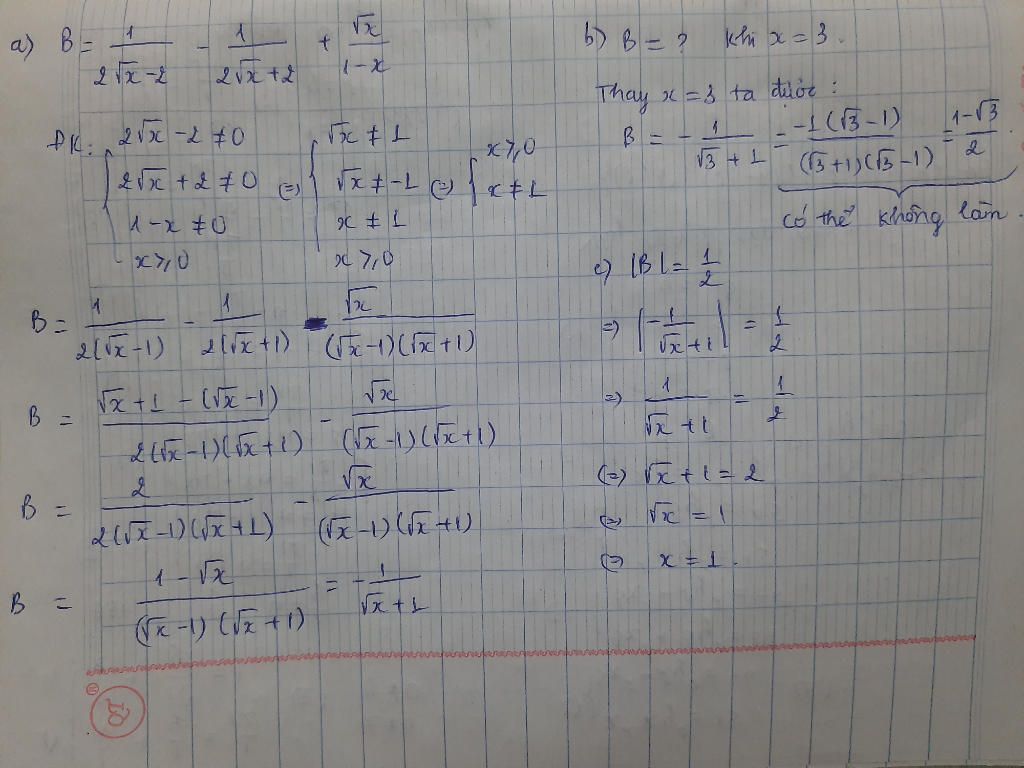 a) B = 1/(2√x-2) - 1/(2√x+2) + √x/(1-x)
ĐK: { 2√x - 2 ≠ 0 { √x ≠ 1 { x ⩾ 0
2√x + 2 ≠ 0 (=) √x ≠ -1 (=) x ≠ 1
1 - x ≠ 0 x ≠ 1
x ⩾ 0 x ⩾ 0
B = 1/(2(√x-1)) - 1/(2(√x+1)) - √x/((√x-1)(√x+1))
B = (√x+1-(√x-1))/(2(√x-1)(√x+1)) - √x/((√x-1)(√x+1))
B = 2/(2(√x-1)(√x+1)) - √x/((√x-1)(√x+1))
B = (1-√x)/((√x-1)(√x+1)) = -1/(√x+1)
b) B = ? khi x = 3.
Thay x = 3 ta được:
B = -1/(√3+1) = -1(√3-1)/((√3+1)(√3-1)) = (1-√3)/2
có thể không làm.
c) |B| = 1/2
=) |-1/(√x+1)| = 1/2
=) 1/(√x+1) = 1/2
(=) √x + 1 = 2
(=) √x = 1
(=) x = 1.